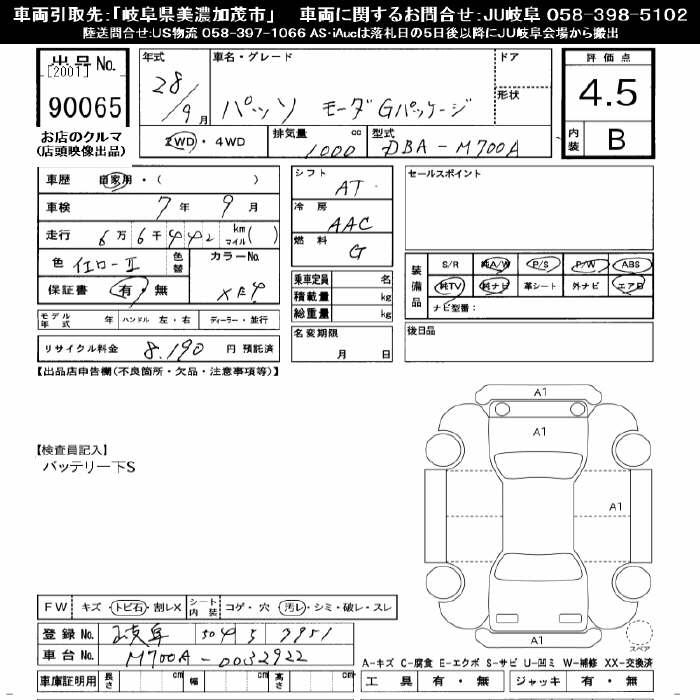 車両引取先:「岐阜県美濃加茂市」 車両に関するお問合せ:JU岐阜 058-398-5102
陸送問合せ:US物流 058-397-1066 AS・iAucは落札日の5日後以降にJU岐阜会場から搬出
出品No.
[2001]
90065
お店のクルマ
(店頭映像出品)
年式
28/9月
車名・グレード
パッソ モーダGパッケージ
ドア
形状
2WD・4WD
排気量 1000 cc
型式 DBA-M700A
評価点
4.5
内装 B
車歴 自家用・( )
車検 7年 9月
走行 6万6千442 km マイル( )
色 イエローⅡ 色替
カラーNo.
保証書 有・無
モデル年式 年 ハンドル 左・右 ディーラー・並行
リサイクル料金 8,190 円 預託済
シフト AT
冷房 AAC
燃料 G
乗車定員 名
積載量 kg
総重量 kg
名変期限
月 日
セールスポイント
装備品
S/R 純A/W P/S P/W ABS
純TV 純ナビ 革シート 外ナビ エアB
ナビ型番:
後日品
【出品店申告欄(不良箇所・欠品・注意事項等)】
【検査員記入】
バッテリー下S
A1
A1
A1
A1
スペア
FW キズ・トビ石・割レX シート内装 コゲ・穴・汚レ・シミ・破レ・スレ
登録No. 岐阜 504 3951
車台No. M700A-0032922
車庫証明用 長さ cm 幅 cm 高さ cm
A-キズ C-腐食 E-エクボ S-サビ U-凹ミ W-補修 XX-交換済
工具 有・無 ジャッキ 有・無